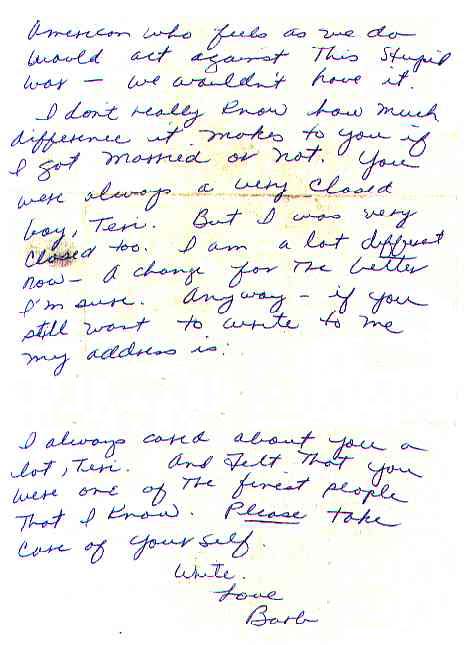 American who feels as we do
would act against This Stupid
war - we wouldn't have it.
I don't really know how much
difference it makes to you if
I got married or not. You
were always a very closed
boy, Teri. But I was very
closed too. I am a lot different
now - A change for the better
I'm sure. Anyway - if you
still want to write to me
my address is:
I always cared about you a
lot, Teri. And Felt That you
were one of The finest people
That I know. Please take
care of yourself.
Write.
Love
Barb